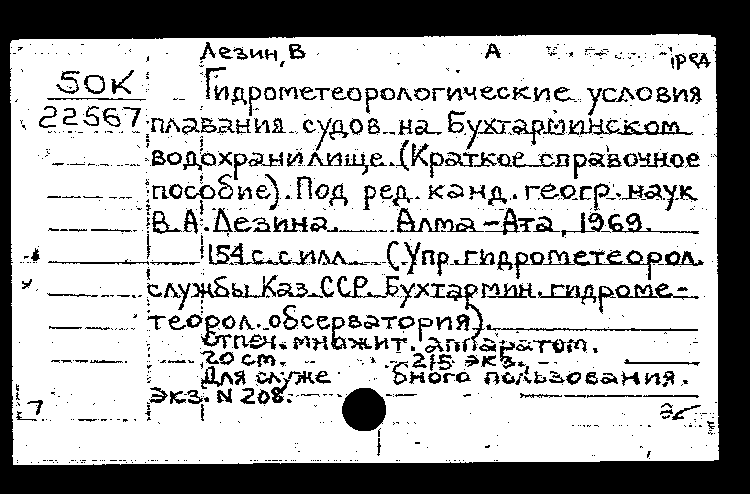 Лезин, В А ред
50К
Гидрометеорологические условия
22567 плавания судов на Бухтарминском
водохранилище. (Краткое справочное
пособие). Под ред. канд. геогр. наук
В.А. Лезина. Алма-Ата, 1969.
154 с. с илл. (Упр. гидрометеорол.
службы Каз. ССР. Бухтармин. гидроме-
теорол. обсерватория).
Отпеч. множит. аппаратом.
20 cm. 215 экз.
Для служе бного пользования.
Экз. N 208.
7